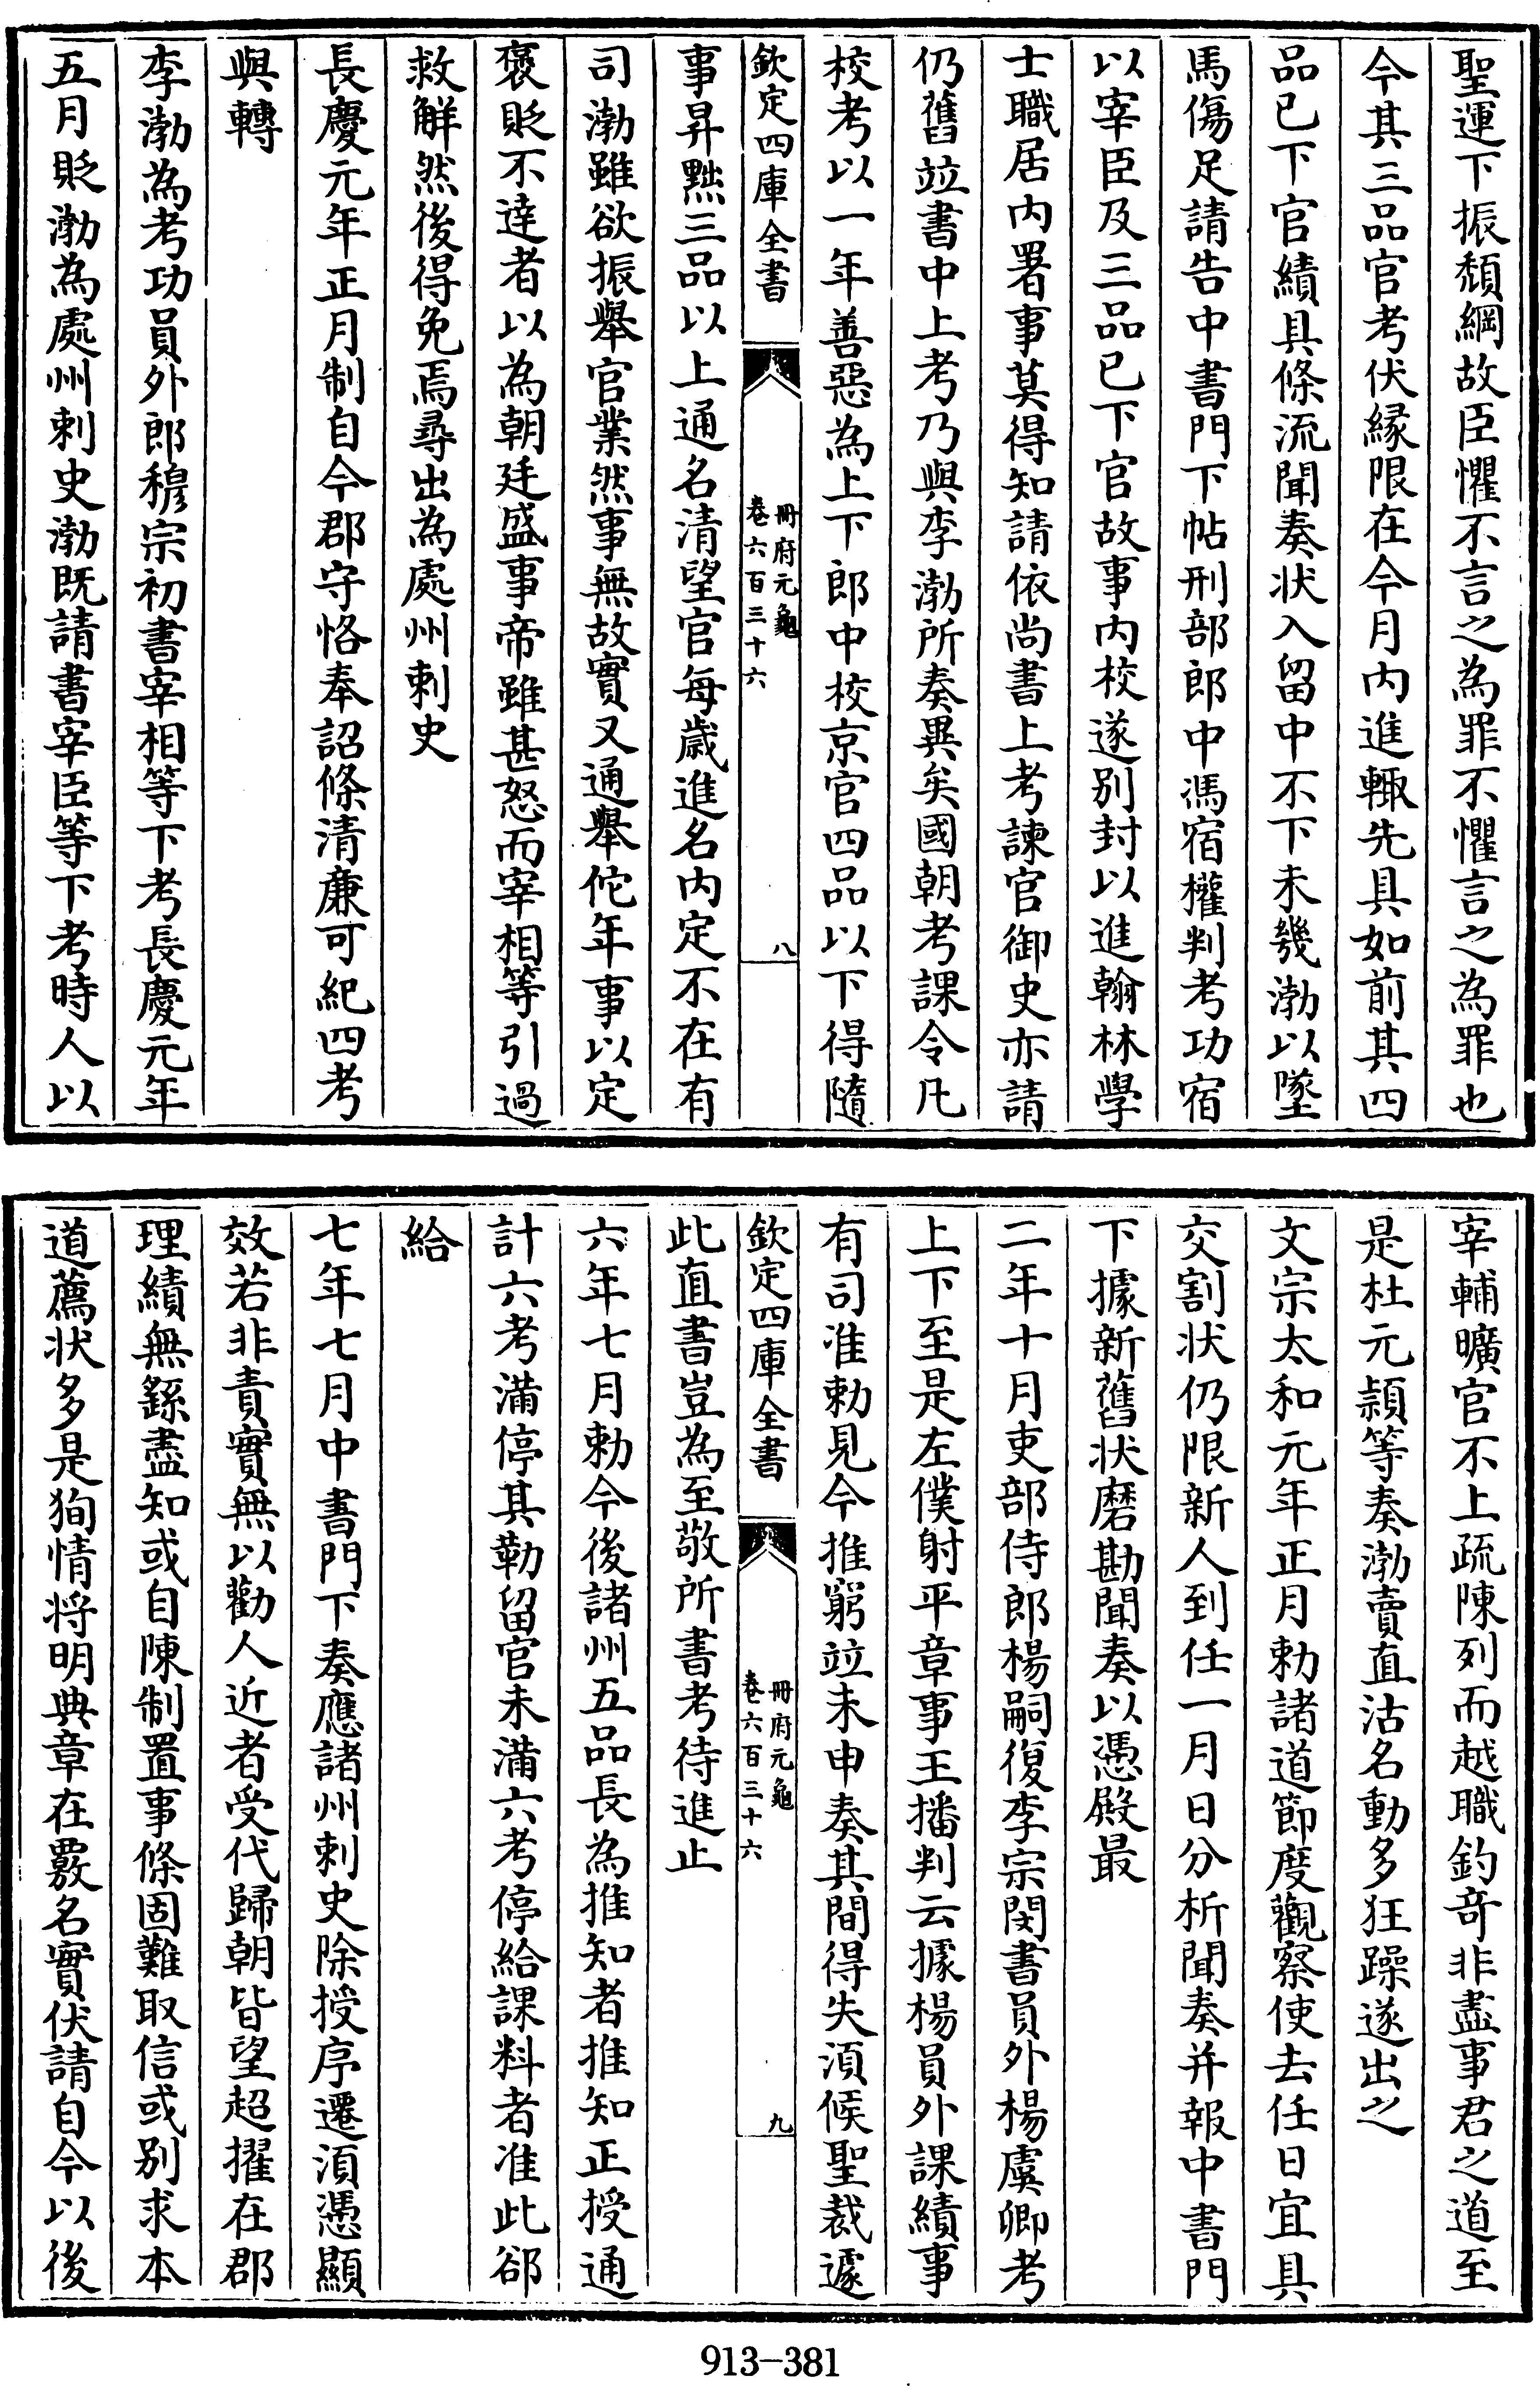 聖運下振頽綱故臣懼不言之為罪不懼言之為罪也
今其三品官考伏縁限在今月内進輙先具如前其四
品已下官績具條流聞奏状入留中不下未幾渤以墜
馬傷足請告中書門下帖刑部郎中馮宿權判考功宿
以宰臣及三品已下官故事内校遂别封以進翰林學
士職居内署事莫得知請依尚書上考諫官御史亦請
仍舊竝書中上考乃與李渤所奏異矣國朝考課令凡
校考以一年善惡為上下郎中校京官四品以下得隨
欽定四庫全書
冊府元龜
卷六百三十六
八
事昇黜三品以上通名清望官每歲進名内定不在有
司渤雖欲振舉官業然事無故實又通舉佗年事以定
褒貶不達者以為朝廷盛事帝雖甚怒而宰相等引過
救解然後得免焉尋出為處州刺史
長慶元年正月制自今郡守恪奉詔條清廉可紀四考
與轉
李渤為考功員外郎穆宗初書宰相等下考長慶元年
五月貶渤為處州刺史渤既請書宰臣等下考時人以
宰輔曠官不上疏陳列而越職釣竒非盡事君之道至
是杜元頴等奏渤賣直沽名動多狂躁遂出之
文宗太和元年正月勅諸道節度觀察使去任日宜具
交割状仍限新人到任一月日分析聞奏并報中書門
下據新舊状磨勘聞奏以憑殿最
二年十月吏部侍郎楊嗣復李宗閔書員外楊虞卿考
上下至是左僕射平章事王播判云據楊員外課績事
有司准勅見今推窮竝未申奏其間得失湏候聖裁遽
欽定四庫全書
冊府元龜
卷六百三十六
九
此直書豈為至敬所書考待進止
六年七月勅今後諸州五品長為推知者推知正授通
計六考滿停其勒留官未滿六考停給課料者准此郤
給
七年七月中書門下奏應諸州刺史除授序遷湏憑顯
效若非責實無以勸人近者受代歸朝皆望超擢在郡
理績無繇盡知或自陳制置事條固難取信或别求本
道薦状多是狥情将明典章在覈名實伏請自今以後
913-381